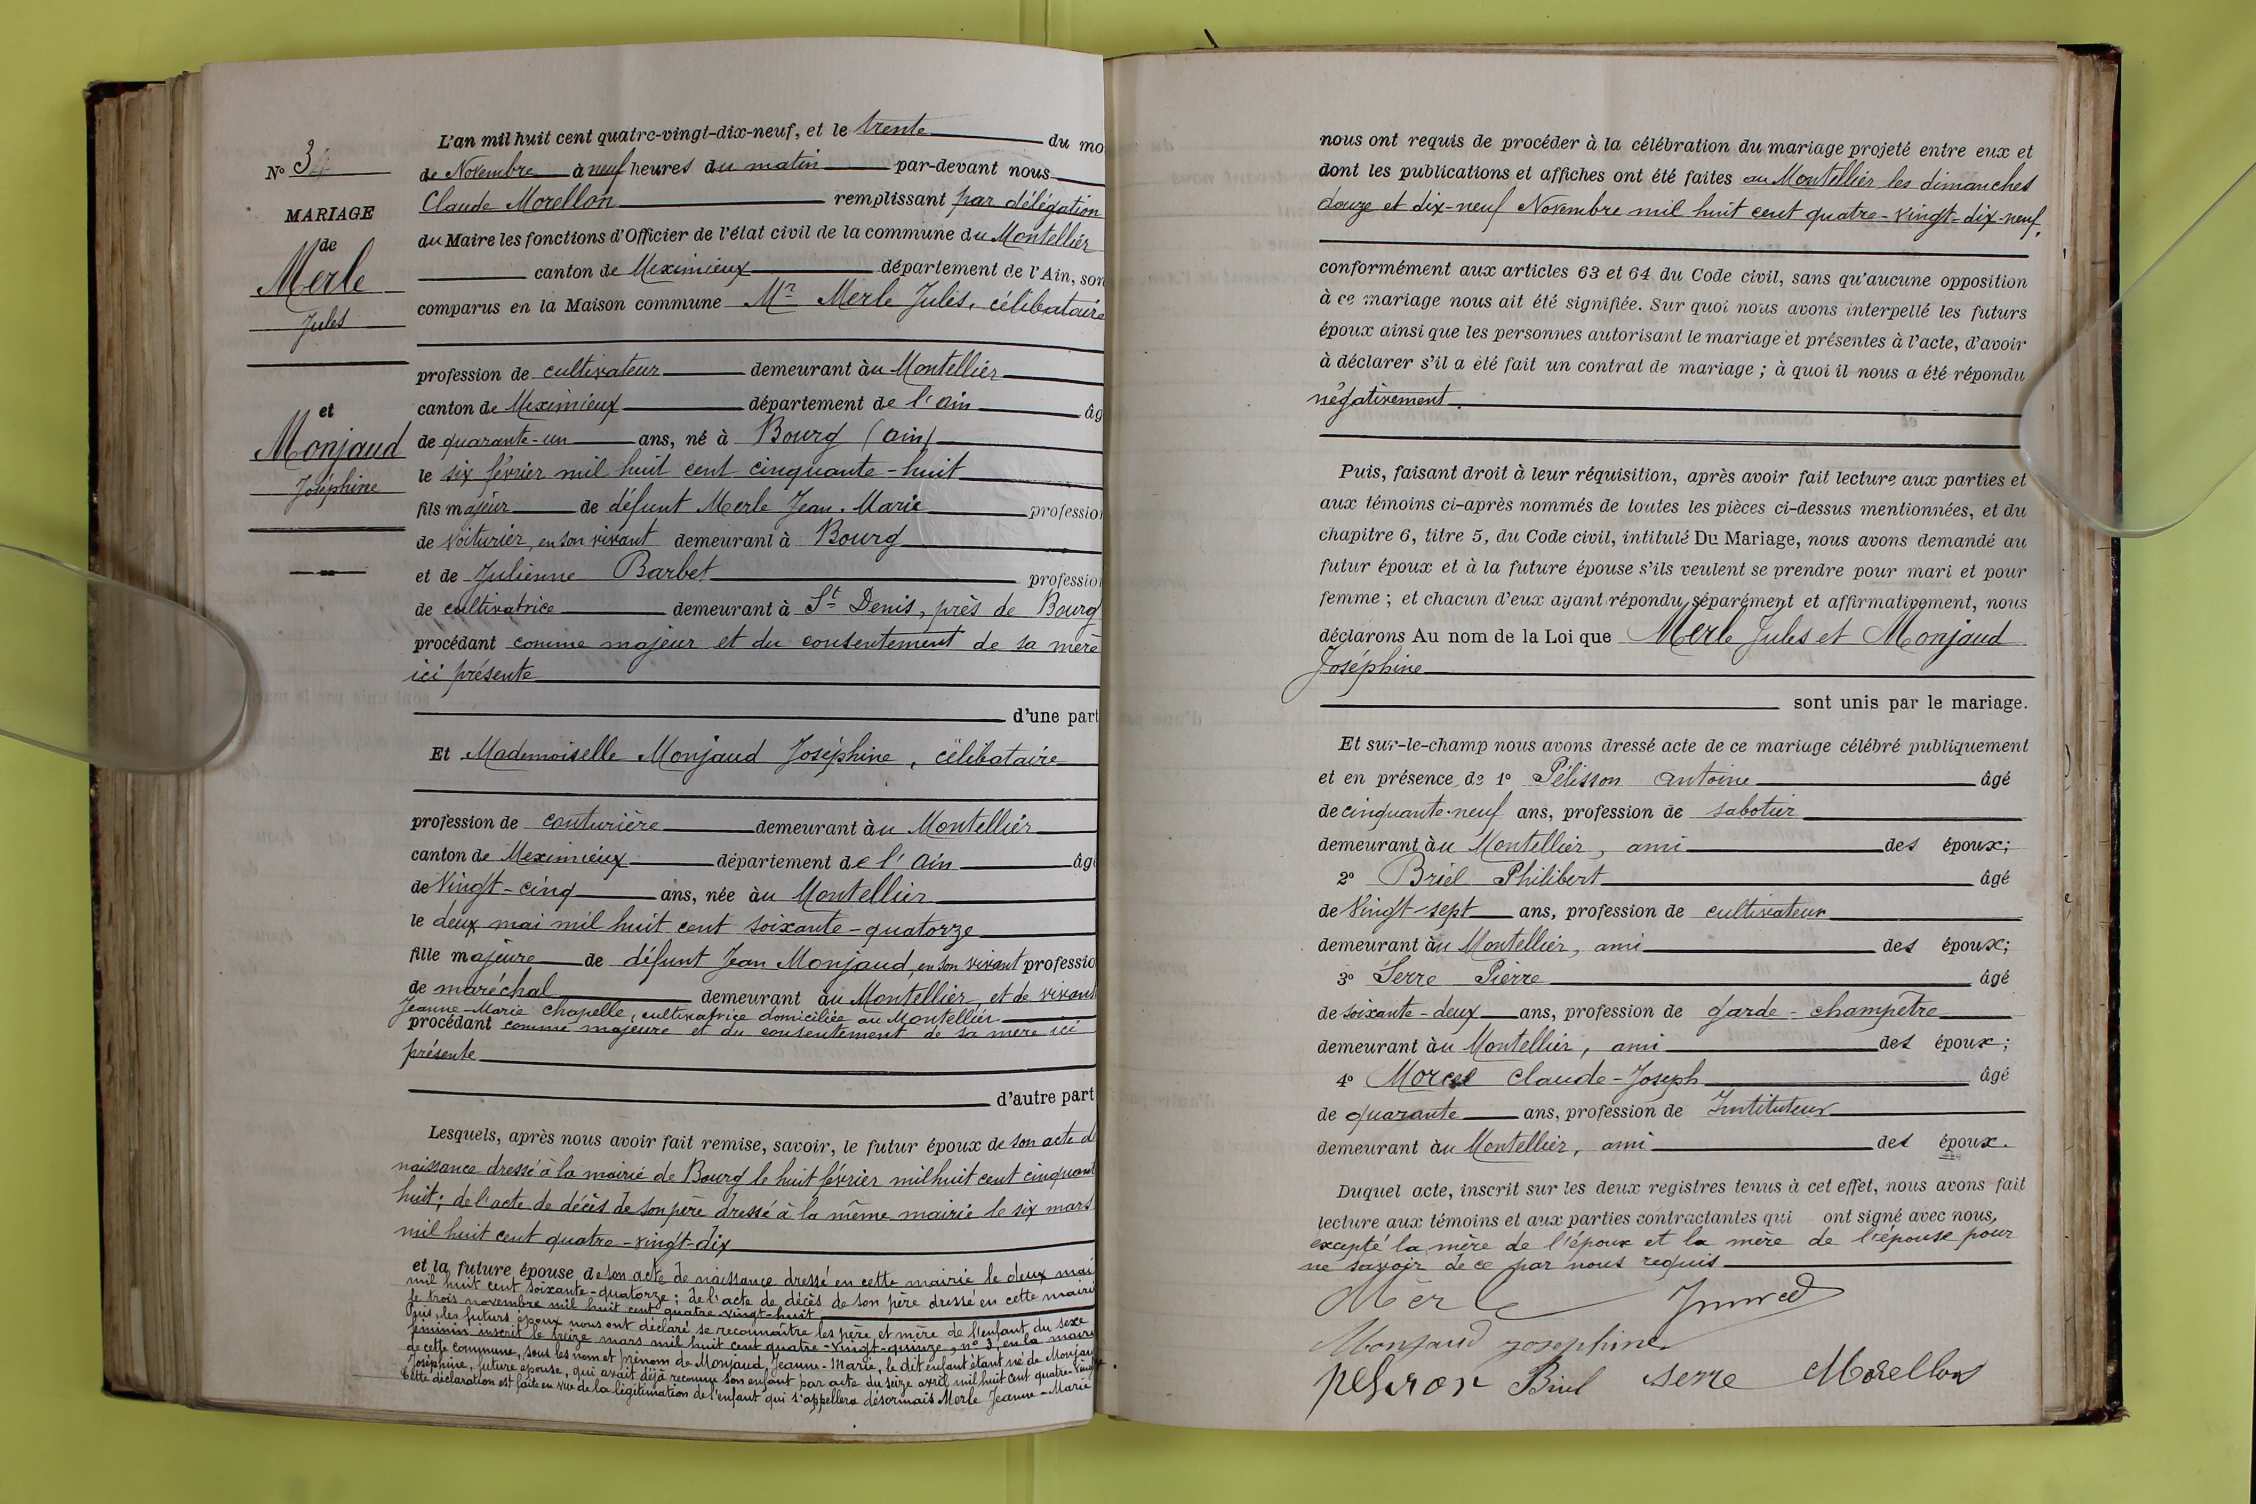 L'an mil huit cent quatre-vingt-dix-neuf, et le trente du mo
de Novembre à neuf heures du matin par-devant nous
Claude Morellon remplissant par délégation
du Maire les fonctions d'Officier de l'état civil de la commune du Montellier
canton de Meximieux département de l'Ain, son
comparus en la Maison commune Mr Merle Jules, célibataire
profession de cultivateur demeurant àu Montellier
canton de Meximieux département de l'ain âg
de quarante-un ans, né à Bourg (ain)
le six février mil huit cent cinquante-huit
fils majeur de défunt Merle Jean-Marie profession
de voiturier, en son vivant demeurant à Bourg
et de Julienne Barbet profession
de cultivatrice demeurant à St Denis, près de Bourg
procédant comme majeur et du consentement de sa mère
ici présente
d'une part
Et Mademoiselle Monjaud Joséphine, célibataire
profession de couturière demeurant àu Montellier
canton de Meximieux département de l'ain âgé
de vingt-cinq ans, née àu Montellier
le deux mai mil huit cent soixante-quatorze
fille majeure de défunt Jean Monjaud, en son vivant professio
de maréchal demeurant àu Montellier, et de vivant
Jeanne-Marie Chapelle, cultivatrice domiciliée au Montellier
procédant comme majeure et du consentement de sa mère ici
présente
d'autre part
Lesquels, après nous avoir fait remise, savoir, le futur époux de son acte d
naissance dressé à la mairie de Bourg le huit février mil huit cent cinquant
huit; de l'acte de décès de son père dressé à la même mairie le six mars
mil huit cent quatre-vingt-dix
et la future épouse de son acte de naissance dressé en cette mairie le deux mai
mil huit cent soixante-quatorze; de l'acte de décès de son père dressé en cette mairie
le trois novembre mil huit cent quatre-vingt-huit
Puis, les futurs époux nous ont déclaré se reconnaître les père et mère de l'enfant du sexe
féminin inscrit le seize mars mil huit cent quatre-vingt-quinze, n° 3, en la mairie
de cette commune, sous les nom et prénom de Monjaud, Jeanne-Marie, le dit enfant étant né de Monjau
Joséphine, future épouse, qui avait déjà reconnu son enfant par acte du seize avril mil huit cent quatre-vingt
Cette déclaration est faite en vue de la légitimation de l'enfant qui s'appellera désormais Merle Jeanne-Marie
N° 3
MARIAGE
de
Merle
Jules
et
Monjaud
Joséphine
nous ont requis de procéder à la célébration du mariage projeté entre eux et
dont les publications et affiches ont été faites au Montellier les dimanches
douze et dix-neuf Novembre mil huit cent quatre-vingt-dix-neuf.
conformément aux articles 63 et 64 du Code civil, sans qu'aucune opposition
à ce mariage nous ait été signifiée. Sur quoi nous avons interpellé les futurs
époux ainsi que les personnes autorisant le mariage et présentes à l'acte, d'avoir
à déclarer s'il a été fait un contrat de mariage; à quoi il nous a été répondu
négativement.
Puis, faisant droit à leur réquisition, après avoir fait lecture aux parties et
aux témoins ci-après nommés de toutes les pièces ci-dessus mentionnées, et du
chapitre 6, titre 5, du Code civil, intitulé Du Mariage, nous avons demandé au
futur époux et à la future épouse s'ils veulent se prendre pour mari et pour
femme; et chacun d'eux ayant répondu séparément et affirmativement, nous
déclarons Au nom de la Loi que Merle Jules et Monjaud
Joséphine
sont unis par le mariage.
Et sur-le-champ nous avons dressé acte de ce mariage célébré publiquement
et en présence de 1° Pélisson Antoine âgé
de cinquante-neuf ans, profession de sabotier
demeurant àu Montellier, ami des époux;
2° Briel Philibert âgé
de vingt-sept ans, profession de cultivateur
demeurant àu Montellier, ami des époux;
3° Serre Pierre âgé
de soixante-deux ans, profession de garde-champêtre
demeurant àu Montellier, ami des époux;
4° Morcel Claude-Joseph âgé
de quarante ans, profession de Instituteur
demeurant àu Montellier, ami des époux.
Duquel acte, inscrit sur les deux registres tenus à cet effet, nous avons fait
lecture aux témoins et aux parties contractantes qui ont signé avec nous,
excepté la mère de l'époux et la mère de l'épouse pour
ne savoir de ce par nous requis
Merle
Monjaud josephine
Briel serre Morellon